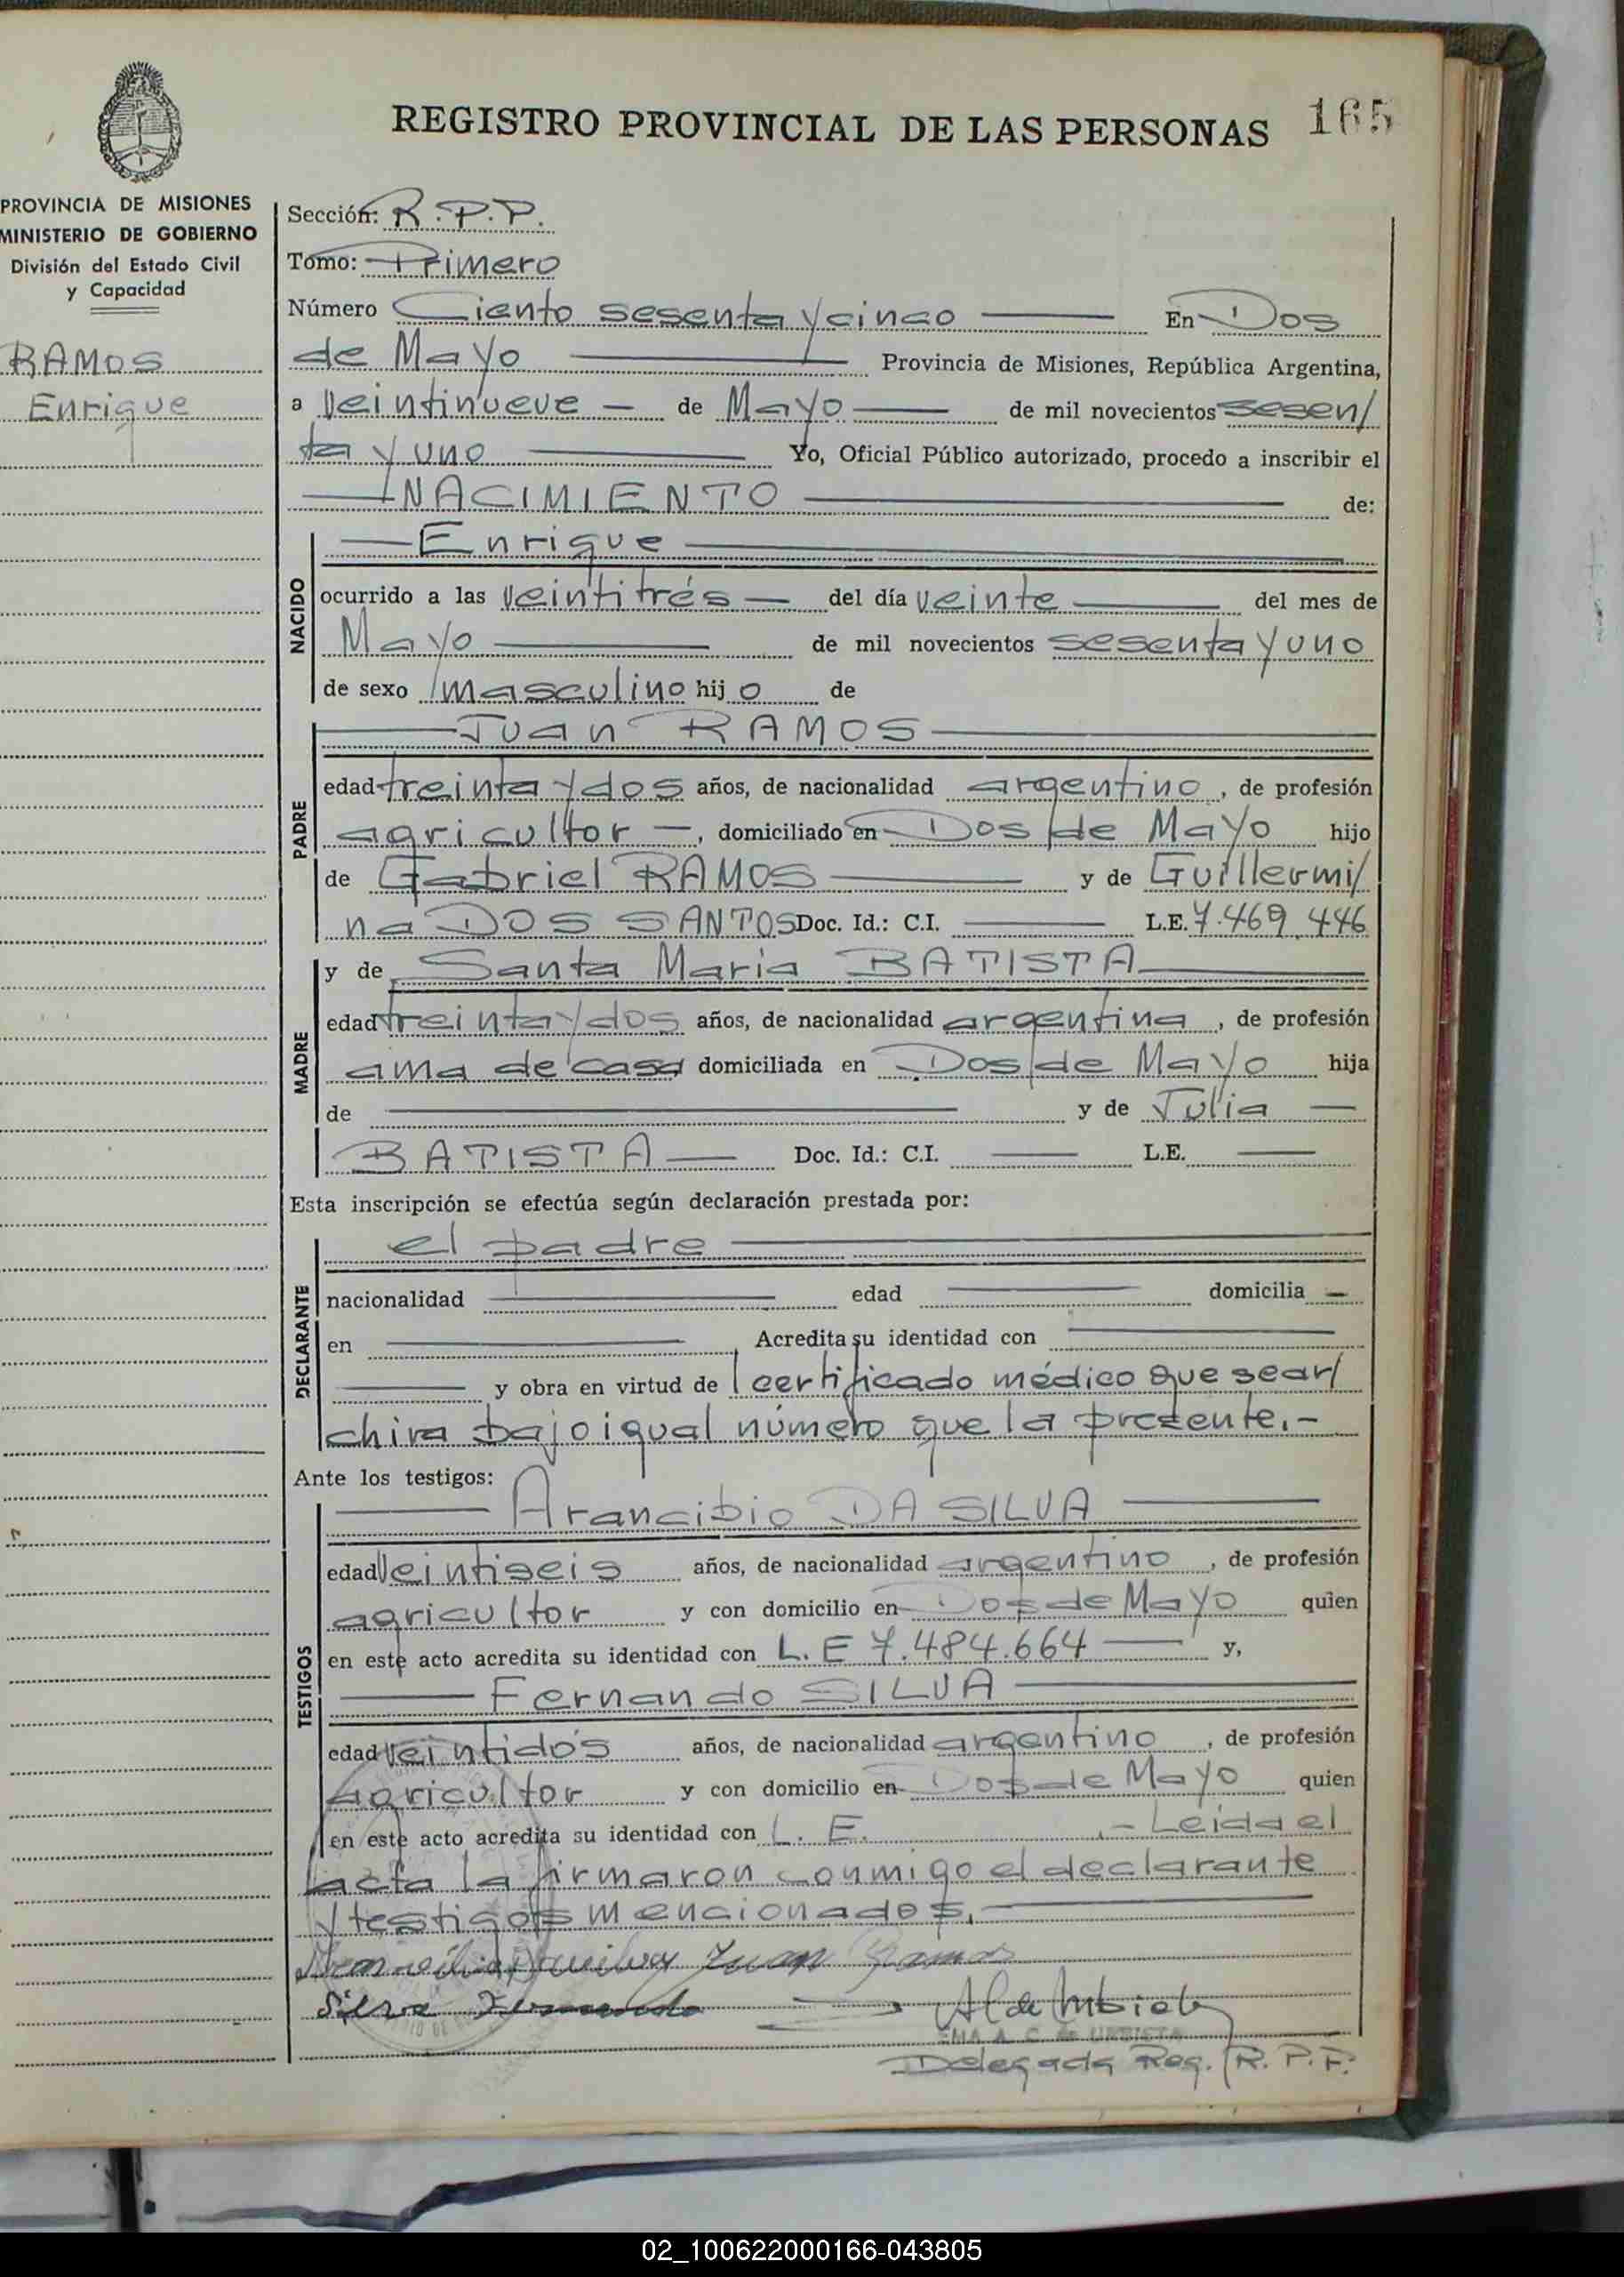 REGISTRO PROVINCIAL DE LAS PERSONAS 165
PROVINCIA DE MISIONES
MINISTERIO DE GOBIERNO
División del Estado Civil
y Capacidad
RAMOS
Enrique
Sección: R.P.P.
Tomo: Primero
Número Ciento sesenta y cinco En Dos
de Mayo Provincia de Misiones, República Argentina,
a Veintinueve de Mayo de mil novecientos sesen/
ta y uno Yo, Oficial Público autorizado, procedo a inscribir el
NACIMIENTO de:
NACIDO
Enrique
ocurrido a las veintitrés del día veinte del mes de
Mayo de mil novecientos sesenta y uno
de sexo masculino hijo de
PADRE
Juan RAMOS
edad treinta y dos años, de nacionalidad argentino, de profesión
agricultor, domiciliado en Dos de Mayo hijo
de Gabriel RAMOS y de Guillermi/
na DOS SANTOS Doc. Id.: C.I. L.E. 7.469.446
MADRE
y de Santa Maria BATISTA
edad treinta y dos años, de nacionalidad argentina, de profesión
ama de casa domiciliada en Dos de Mayo hija
de y de Julia
BATISTA Doc. Id.: C.I. L.E.
Esta inscripción se efectúa según declaración prestada por:
DECLARANTE
el padre
nacionalidad edad domicilia
en Acredita su identidad con
y obra en virtud de certificado médico que se ar/
chiva bajo igual número que la presente.-
Ante los testigos:
TESTIGOS
Arancibio DA SILVA
edad Veintiseis años, de nacionalidad argentino, de profesión
agricultor y con domicilio en Dos de Mayo quien
en este acto acredita su identidad con L.E 7.484.664 y,
Fernando SILVA
edad Veintidós años, de nacionalidad argentino, de profesión
agricultor y con domicilio en Dos de Mayo quien
en este acto acredita su identidad con L. E. .- Leida el
acta la firmaron conmigo el declarante
y testigos mencionados.
Juan Ramos
Silva Fernando
Delegada Reg. R. P. P.
02_100622000166-043805